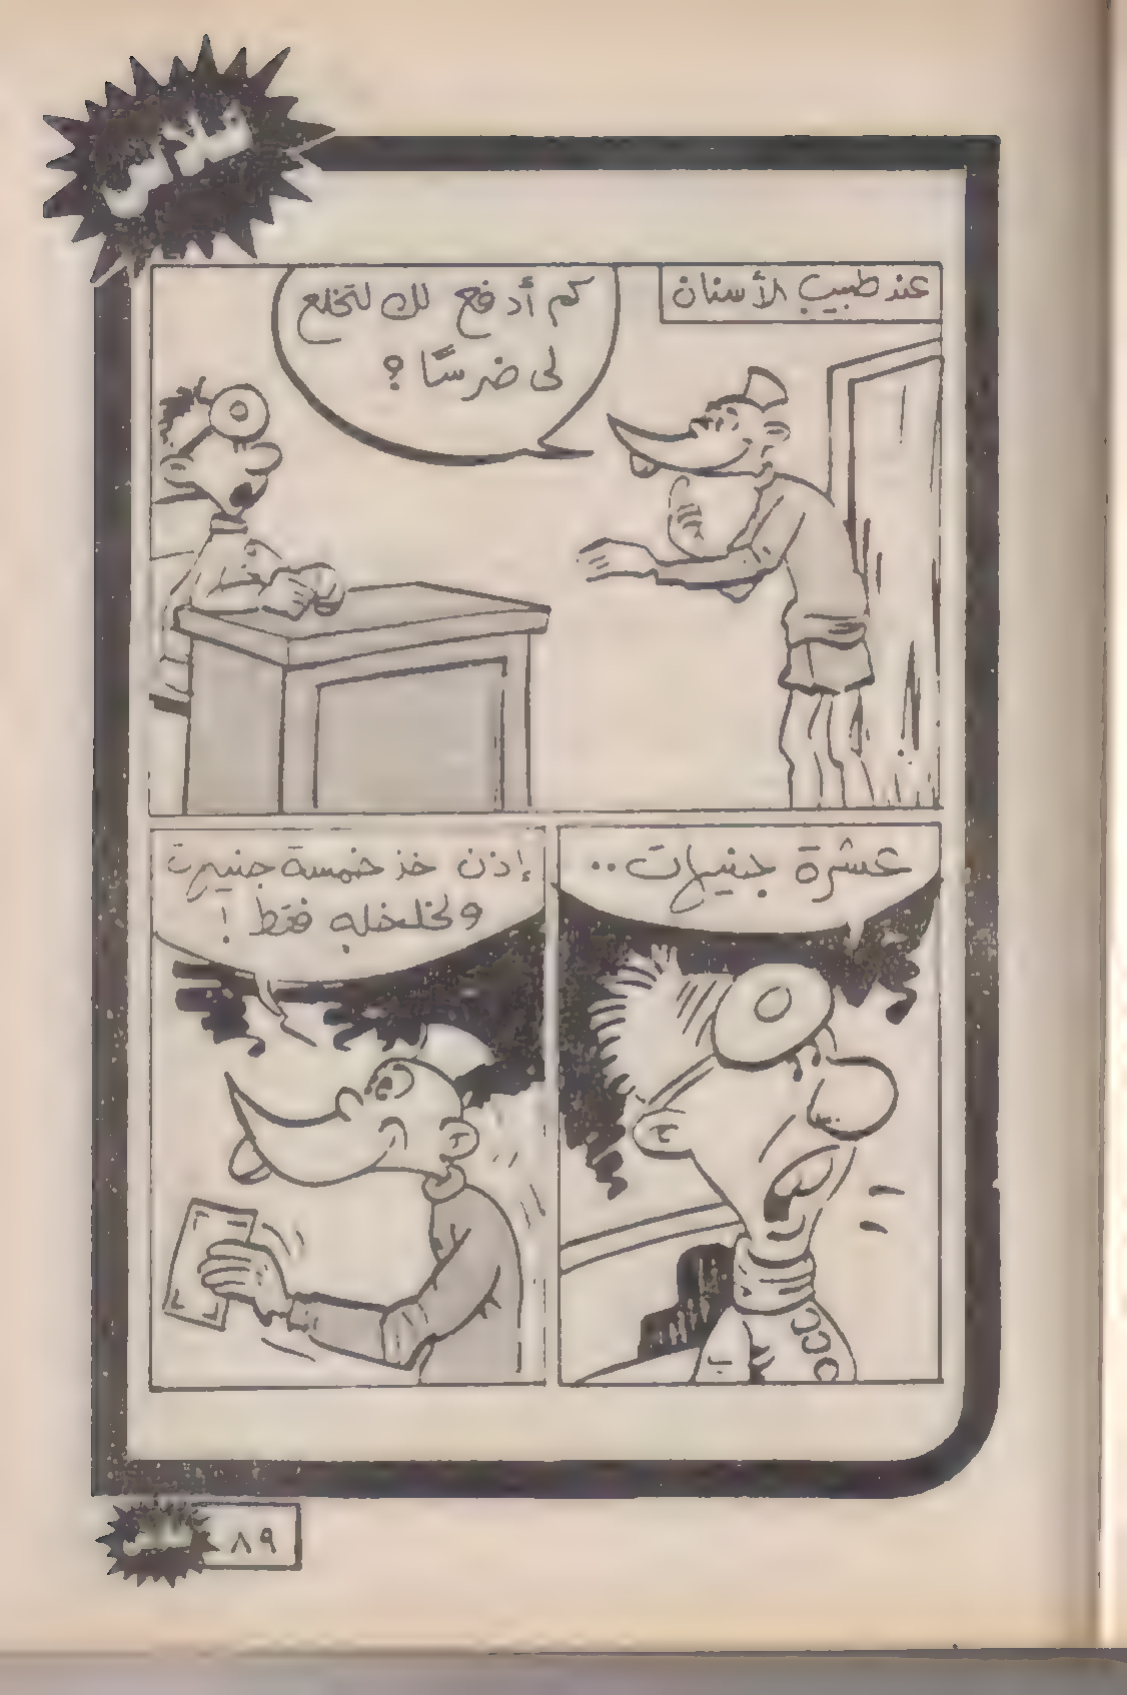 فلاش
عند طبيب الأسنان
كم أدفع لك لتخلع
لى ضرسًا ؟
عشرة جنيهات ..
إذن خذ خمسة جنيهات
ولخلخله فقط !
فلاش
٨٩